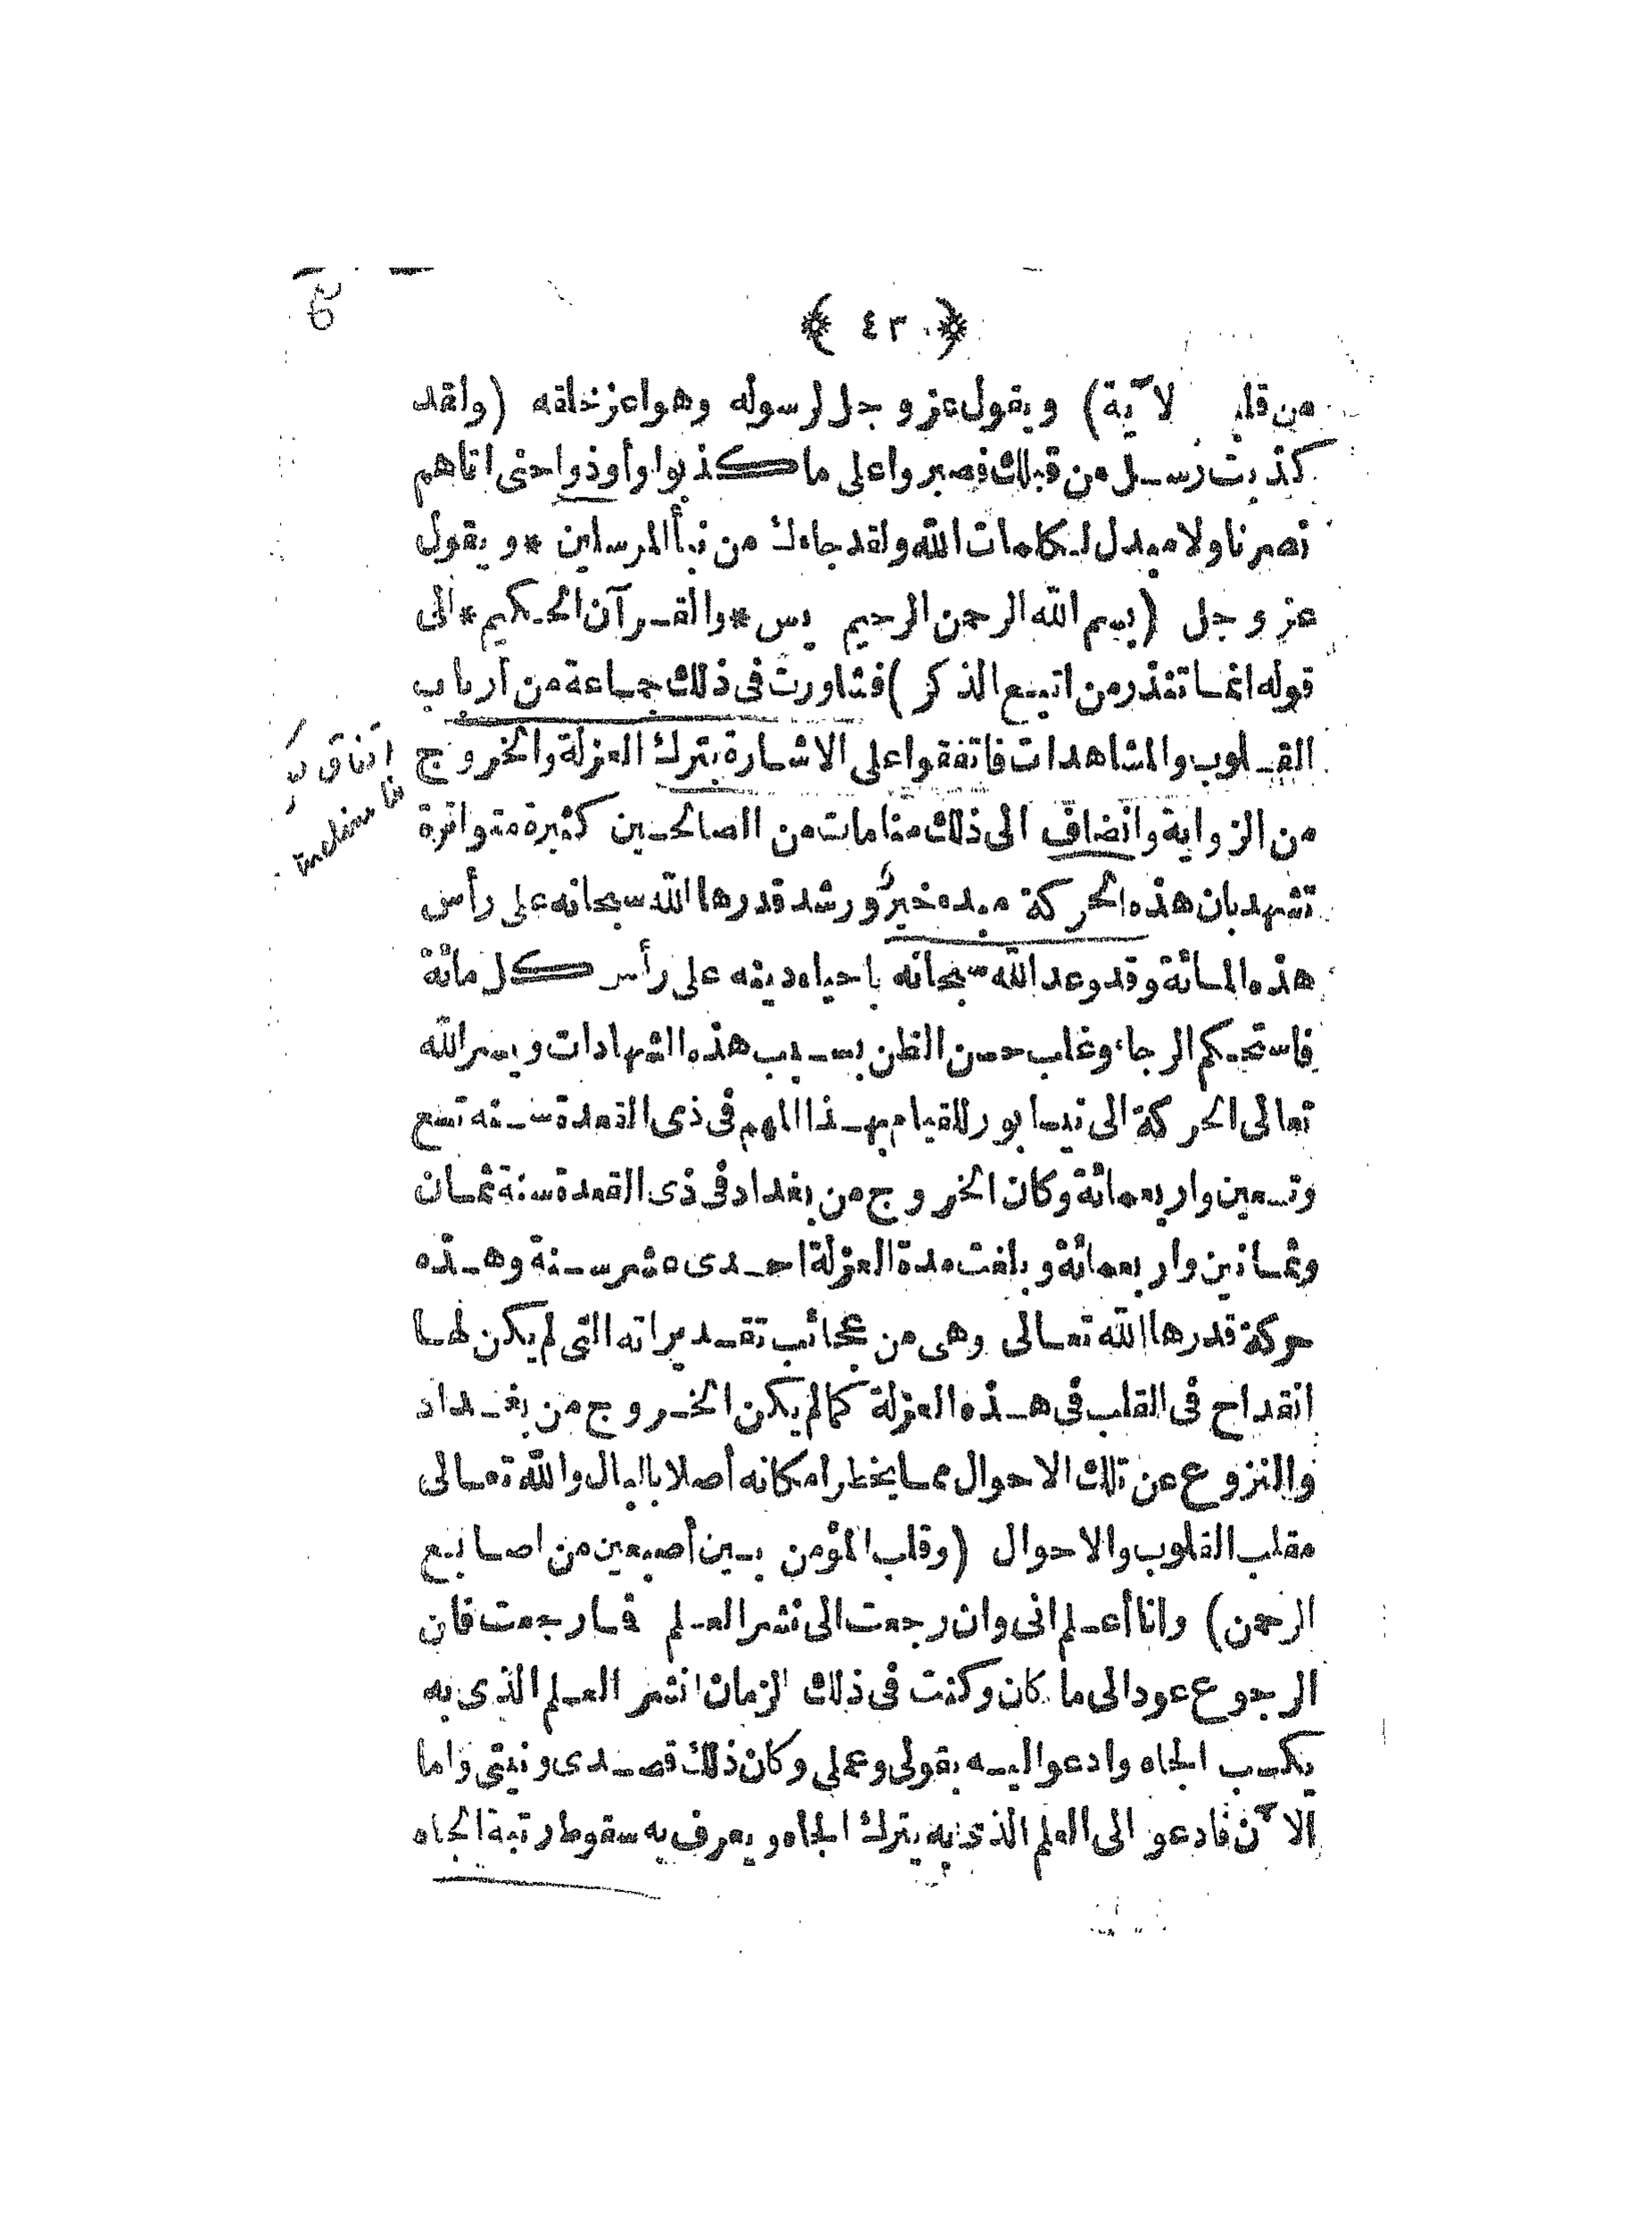 ﴿ ٤٣ ﴾
من قبلـ لآية) ويقول عز وجل لرسوله وهو اعز خلقه (ولقد
كذبت رسل من قبلك فصبروا على ما كذبوا وأوذوا حتى اتاهم
نصرنا ولا مبدل لكلمات الله ولقد جاءك من نبأ المرسلين * ويقول
عز وجل (بسم الله الرحمن الرحيم يس * والقرآن الحكيم * الى
قوله انما تنذر من اتبع الذكر) فشاورت فى ذلك جماعة من أرباب
القلوب والمشاهدات فاتفقوا على الاشارة بترك العزلة والخروج
من الزواية وانضاف الى ذلك منامات من الصالحين كثيرة متواترة
تشهد بان هذه الحركة مبدء خير ورشد قدرها الله سبحانه على رأس
هذه المائة وقد وعد الله سبحانه باحياء دينه على رأس كل مائة
فاستحكم الرجاء وغلب حسن الظن بسبب هذه الشهادات ويسر الله
تعالى الحركة الى نيسابور للقيام بهذا المهم فى ذى القعدة سنه تسع
وتسعين واربعمائة وكان الخروج من بغداد فى ذى القعدة سنة ثمان
وثمانين واربعمائة وبلغت مدة العزلة احدى عشر سنة وهذه
حركة قدرها الله تعالى وهى من عجائب تقديراته التى لم يكن لها
انقداح فى القلب فى هذه العزلة كما لم يكن الخروج من بغداد
والنزوع عن تلك الاحوال مما يخطر امكانه أصلا بالبال والله تعالى
مقلب القلوب والاحوال (وقلب المؤمن بين أصبعين من اصابع
الرحمن) وانا أعلم انى وان رجعت الى نشر العلم فما رجعت فان
الرجوع عود الى ما كان وكنت فى ذلك الزمان انشر العلم الذى به
يكسب الجاه وادعو اليه بقولى وعملى وكان ذلك قصدى ونيتى واما
الآن فادعو الى العلم الذى به يترك الجاه ويعرف به سقوط رتبة الجاه